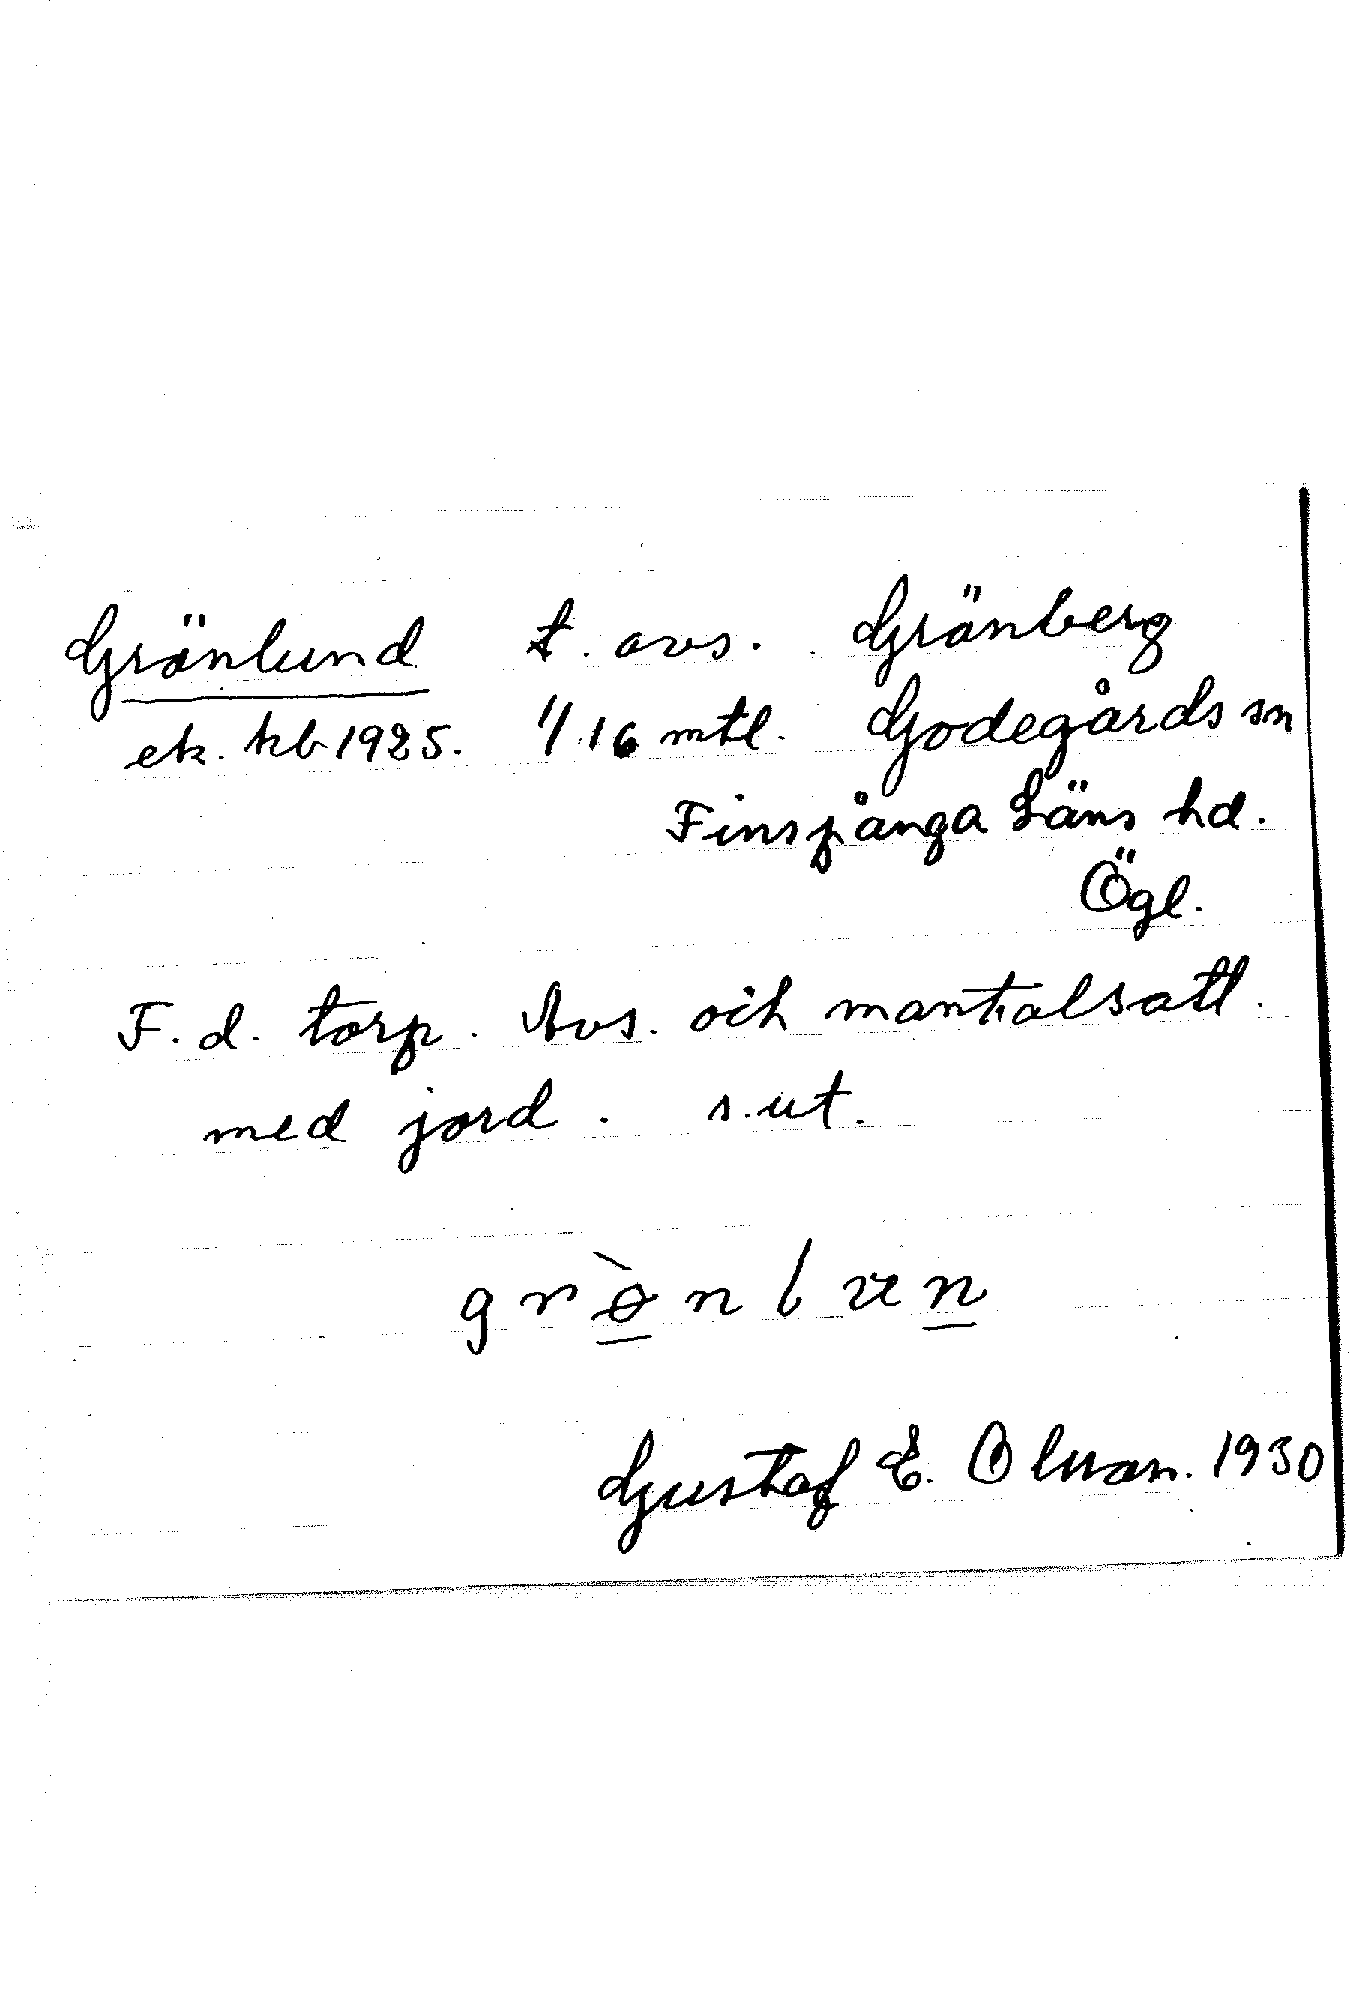 Grönlund t. avs. Grönberg
ek. kb 1925. 1/16 mtl. Godegårds sn
Finspånga Läns hd.
Ögl.
F. d. torp. Avs. och mantalsatt
med jord. s. ut.
grø̀nlun
Gustaf E. Olsson. 1930